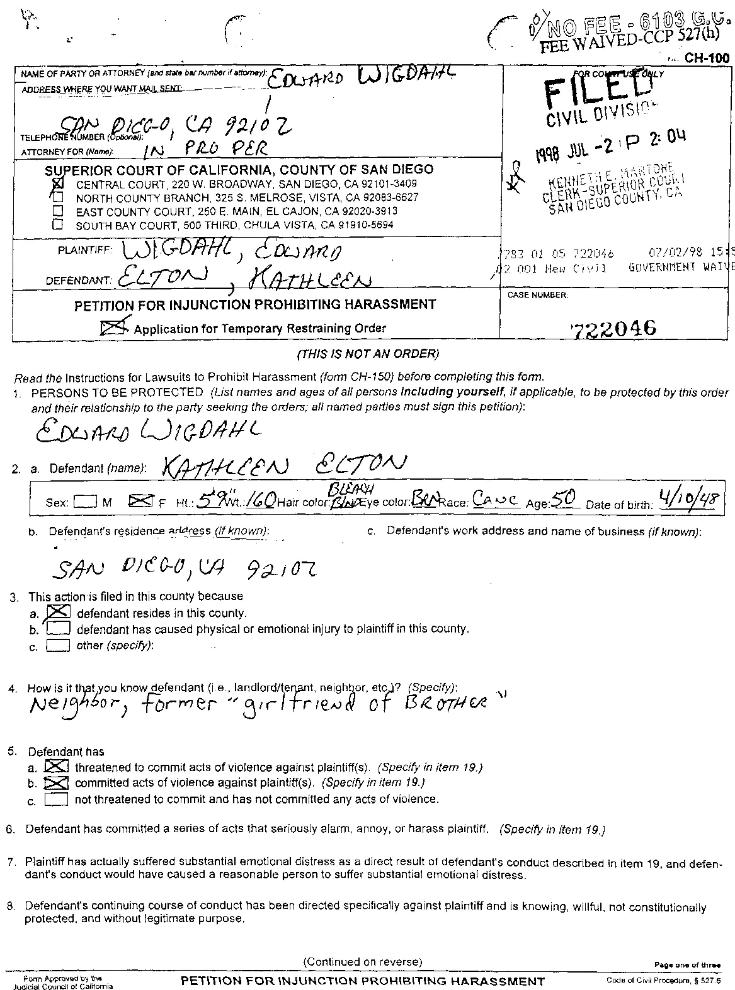 NO FEE - 6103 G.C.
FEE WAIVED-CCP 527(h)
CH-100
NAME OF PARTY OR ATTORNEY (and state bar number if attorney): EDWARD WIGDAHL
ADDRESS WHERE YOU WANT MAIL SENT:
SAN DIEGO, CA 92107
TELEPHONE NUMBER (Optional):
ATTORNEY FOR (Name): IN PRO PER
FOR COURT USE ONLY
FILED
CIVIL DIVISION
1998 JUL -2 P 2:04
KENNETH E. MARTONE
CLERK-SUPERIOR COURT
SAN DIEGO COUNTY, CA
SUPERIOR COURT OF CALIFORNIA, COUNTY OF SAN DIEGO
CENTRAL COURT, 220 W. BROADWAY, SAN DIEGO, CA 92101-3409
NORTH COUNTY BRANCH, 325 S. MELROSE, VISTA, CA 92083-6627
EAST COUNTY COURT, 250 E. MAIN, EL CAJON, CA 92020-3913
SOUTH BAY COURT, 500 THIRD, CHULA VISTA, CA 91910-5694
PLAINTIFF: WIGDAHL, EDWARD
DEFENDANT: ELTON, KATHLEEN
283 01 05 722046 07/02/98 15:
02 001 New Civil GOVERNMENT WAIVE
PETITION FOR INJUNCTION PROHIBITING HARASSMENT
Application for Temporary Restraining Order
CASE NUMBER:
722046
(THIS IS NOT AN ORDER)
Read the Instructions for Lawsuits to Prohibit Harassment (form CH-150) before completing this form.
1. PERSONS TO BE PROTECTED (List names and ages of all persons including yourself, if applicable, to be protected by this order
and their relationship to the party seeking the orders; all named parties must sign this petition):
EDWARD WIGDAHL
2. a. Defendant (name): KATHLEEN ELTON
Sex: M F Ht.: 5'9" Wt.: 160 Hair color: BLEACH BLNDE Eye color: BRN Race: CAUC Age: 50 Date of birth: 4/10/48
b. Defendant's residence address (if known): c. Defendant's work address and name of business (if known):
SAN DIEGO, CA 92107
3. This action is filed in this county because
a. defendant resides in this county.
b. defendant has caused physical or emotional injury to plaintiff in this county.
c. other (specify):
4. How is it that you know defendant (i.e., landlord/tenant, neighbor, etc.)? (Specify):
Neighbor, former "girlfriend of BROTHER"
5. Defendant has
a. threatened to commit acts of violence against plaintiff(s). (Specify in item 19.)
b. committed acts of violence against plaintiff(s). (Specify in item 19.)
c. not threatened to commit and has not committed any acts of violence.
6. Defendant has committed a series of acts that seriously alarm, annoy, or harass plaintiff. (Specify in item 19.)
7. Plaintiff has actually suffered substantial emotional distress as a direct result of defendant's conduct described in item 19, and defen-
dant's conduct would have caused a reasonable person to suffer substantial emotional distress.
8. Defendant's continuing course of conduct has been directed specifically against plaintiff and is knowing, willful, not constitutionally
protected, and without legitimate purpose.
(Continued on reverse)
Page one of three
Form Approved by the
Judicial Council of California
PETITION FOR INJUNCTION PROHIBITING HARASSMENT
Code of Civil Procedure, § 527.6